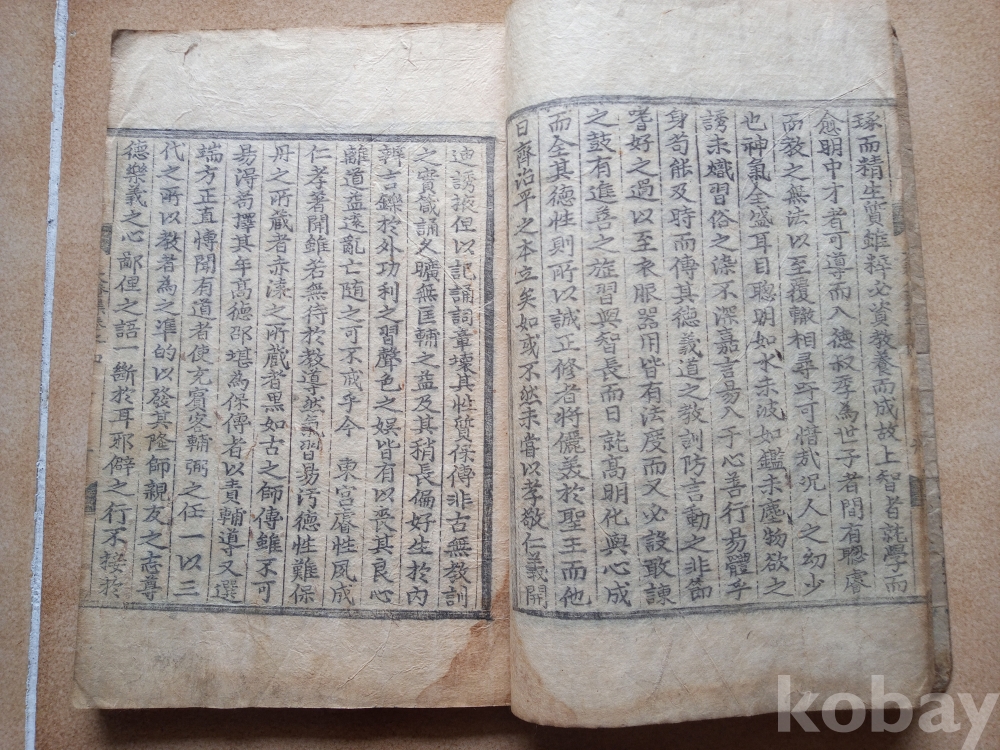 琢而精生質雖粹必資教養而成故上智者能學而
愈明中才者可導而入德叔季為世子者間有聰睿
而教之無法以至覆轍相尋吁可惜哉况人之幼少
也神氣全盛耳目聰明如水未波如鑑未塵物欲之
誘未熾習俗之染不深嘉言易入于心善行易體乎
身苟能及時而傅其德義道之教訓防言動之非節
嗜好之過以至衣服器用皆有法度而又必設敢諫
之鼓有進善之旌習與智長而日就高明化與心成
而全其德性則所以誠正修者将儷美於聖王而他
日齊治平之本立矣如或不然未嘗以孝敬仁義開
迪誘掖但以記誦詞章壞其性質保傅非古無教訓
之實箴誦久曠無匡輔之益及其稍長偏好生於内
辨言鑠於外功利之習聲色之娯皆有以丧其良心
離道益遠亂亡随之可不戒乎今 東宮睿性夙成
仁孝著聞雖若無待於教導然氣習易汚德性難保
丹之所藏者赤漆之所藏者黑如古之師傅雖不可
易得苟擇其年高德邵堪為保傅者以責輔導又選
端方正直博聞有道者使充賓客輔弼之任一以三
代之所以教者為之準的以發其隆師親友之志尊
德樂義之心鄙俚之語一斷於耳邪僻之行不接於
kobay